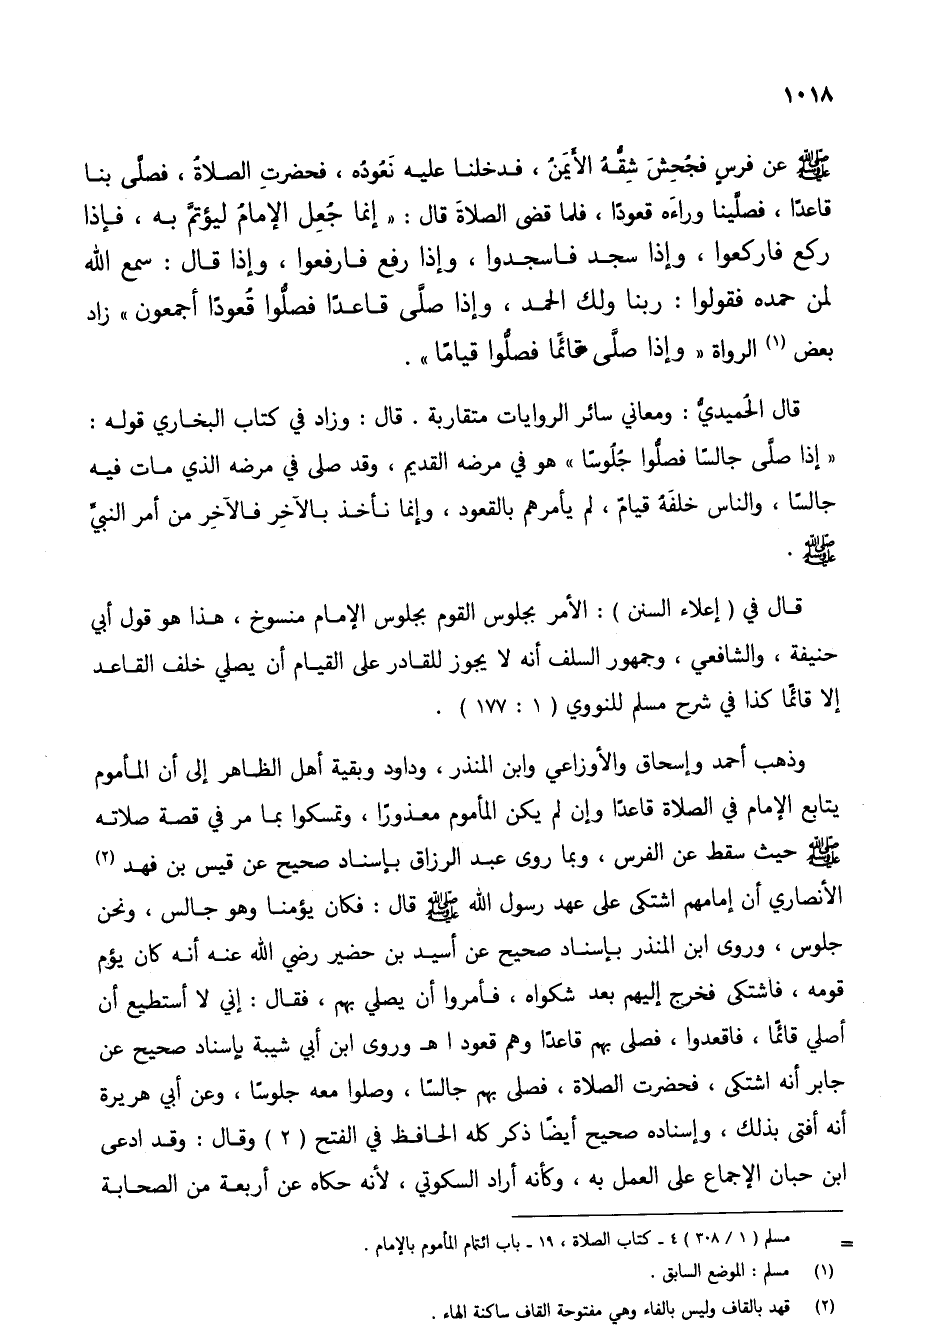 ١٠١٨
ﷺ عن فرسٍ فجُحِشَ شِقُّهُ الأَيمَنُ ، فدخلنا عليه نَعُودُه ، فحضرتِ الصلاةُ ، فصلَّى بنا
قاعدًا ، فصلَّينا وراءَه قعودًا ، فلما قضى الصلاةَ قال : « إنما جُعِل الإمامُ ليؤتمَّ به ، فإذا
ركع فاركعوا ، وإذا سجد فاسجدوا ، وإذا رفع فارفعوا ، وإذا قال : سمع الله
لمن حمده فقولوا : ربنا ولك الحمد ، وإذا صلَّى قاعدًا فصلُّوا قُعودًا أجمعون » زاد
بعض (١) الرواة « وإذا صلَّى قائمًا فصلُّوا قيامًا » .
قال الحُميديُّ : ومعاني سائر الروايات متقاربة . قال : وزاد في كتاب البخاري قوله :
« إذا صلَّى جالسًا فصلُّوا جُلُوسًا » هو في مرضه القديم ، وقد صلى في مرضه الذي مات فيه
جالسًا ، والناس خلفَهُ قيامٌ ، لم يأمرهم بالقعود ، وإنما نأخذ بالآخِر فالآخِر من أمر النبيِّ
ﷺ .
قال في ( إعلاء السنن ) : الأمر بجلوس القوم بجلوس الإمام منسوخ ، هذا هو قول أبي
حنيفة ، والشافعي ، وجمهور السلف أنه لا يجوز للقادر على القيام أن يصلي خلف القاعد
إلا قائمًا كذا في شرح مسلم للنووي ( ١ : ١٧٧ ) .
وذهب أحمد وإسحاق والأوزاعي وابن المنذر ، وداود وبقية أهل الظاهر إلى أن المأموم
يتابع الإمام في الصلاة قاعدًا وإن لم يكن المأموم معذورًا ، وتمسكوا بما مر في قصة صلاته
ﷺ حيث سقط عن الفرس ، وبما روى عبد الرزاق بإسناد صحيح عن قيس بن فهد (٢)
الأنصاري أن إمامهم اشتكى على عهد رسول الله ﷺ قال : فكان يؤمنا وهو جالس ، ونحن
جلوس ، وروى ابن المنذر بإسناد صحيح عن أسيد بن حضير رضي الله عنه أنه كان يؤم
قومه ، فاشتكى فخرج إليهم بعد شكواه ، فأمروا أن يصلي بهم ، فقال : إني لا أستطيع أن
أصلي قائمًا ، فاقعدوا ، فصلى بهم قاعدًا وهم قعود ا هـ وروى ابن أبي شيبة بإسناد صحيح عن
جابر أنه اشتكى ، فحضرت الصلاة ، فصلى بهم جالسًا ، وصلوا معه جلوسًا ، وعن أبي هريرة
أنه أفتى بذلك ، وإسناده صحيح أيضًا ذكر كله الحافظ في الفتح ( ٢ ) وقال : وقد ادعى
ابن حبان الإجماع على العمل به ، وكأنه أراد السكوتي ، لأنه حكاه عن أربعة من الصحابة
= مسلم ( ١ / ٣٠٨ ) ٤ ـ كتاب الصلاة ، ١٩ ـ باب ائتمام المأموم بالإمام .
(١) مسلم : الموضع السابق .
(٢) قهد بالقاف وليس بالفاء وهي مفتوحة القاف ساكنة الهاء .